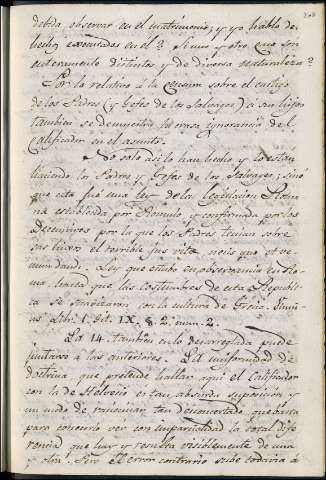 debida observar en el matrimonio; y yo hablo de
hechos executados en el? Si uno y otro caso son
enteramente distintos y de diversa naturaleza?
Por lo relativo á la Censura sobre el castigo
de los Padres (y Gefes de los Salvages) á sus hijos
tambien se demuestra la crasa ignorancia del
Calificador en el asunto.
No solo asi lo han hecho y lo están
haciendo los Padres y Gefes de los Salvages; sinó
que esto fué una ley de la Legislacion Roma
na establecida por Romulo, y confirmada por los
Decemviros por la que los Padres tenian sobre
sus hijos el terrible jus vitæ necis que et ve-
nundandi. Ley que estubo en observancia en Ro
ma, hasta que las costumbres de esta Republi
ca se suavizaron con la cultura de Grecia.
Libr. 1. Tit. IX. § 2. num. 2.
La 14. tambien es lo desarreglada puede
juntarse á las anteriores. La uniformidad de
doctrina que pretende hallar aqui el Calificador
con la de Helvecio es tan absurda suposicion y
un modo de raciocinar tan desconcertado, que basta
para conocerlo ver con imparcialidad la total dife
rencia que hay y resulta visiblemente de una
y otra. Pero el error contrario sube todavia á